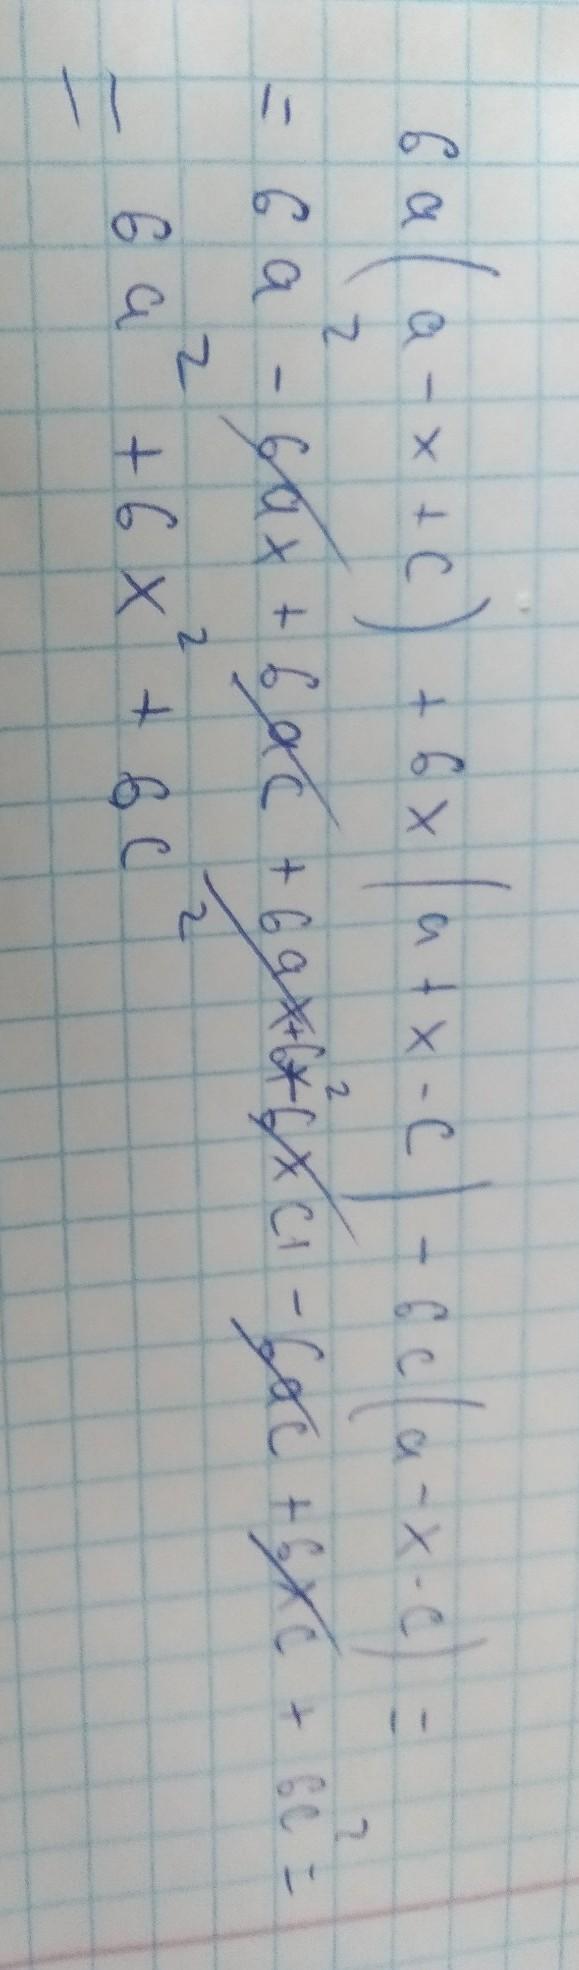 6a(a-x+c)+6x(a+x-c)-6c(a-x-c)=
=6a²-6ax+6ac+6ax+6x²-6xc-6ac+6xc+6c²=
=6a²+6x²+6c²